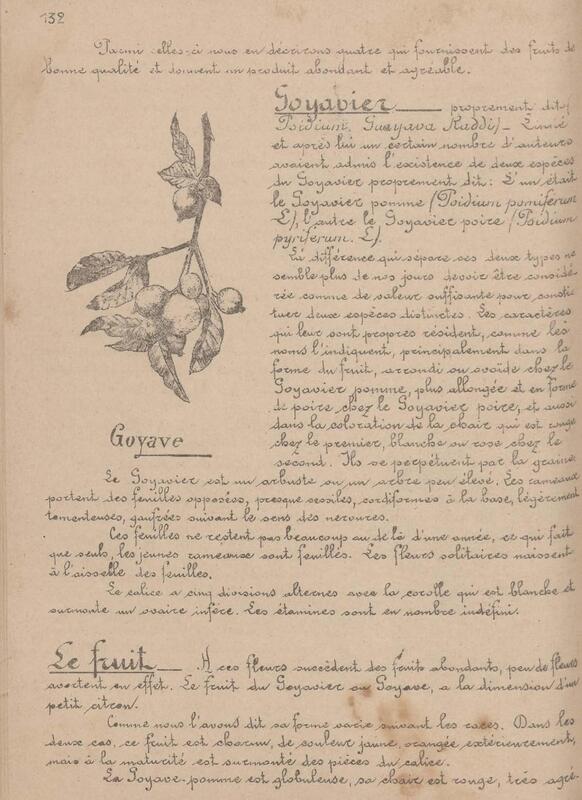 132
Parmi celles-ci nous en décrirons quatre qui fournissent des fruits de
bonne qualité et donnent un produit abondant et agréable.
Goyavier proprement dit (
Psidium Guayava Raddi) - Linné
et après lui un certain nombre d'auteurs
avaient admis l'existence de deux espèces
du Goyavier proprement dit: L'un était
le Goyavier pomme (Psidium pomiferum
L), l'autre le Goyavier poire (Psidium
pyriferum. L).
La différence qui sépare ces deux types ne
semble plus de nos jours devoir être considé-
rée comme de valeur suffisante pour consti-
tuer deux espèces distinctes. Les caractères
qui leur sont propres résident, comme les
noms l'indiquent, principalement dans la
forme du fruit, arrondi ou ovoïde chez le
Goyavier pomme, plus allongée et en forme
de poire chez le Goyavier poire, et aussi
dans la coloration de la chair qui est rouge
chez le premier, blanche ou rose chez le
second. Ils se perpétuent par la graine.
Goyave
Le Goyavier est un arbuste ou un arbre peu élevé. Les rameaux
portent des feuilles opposées, presque sessiles, cordiformes à la base, légèrement
tomenteuses, gaufrées suivant le sens des nervures.
Ces feuilles ne restent pas beaucoup au delà d'une année, ce qui fait
que seuls, les jeunes rameaux sont feuillés. Les fleurs solitaires naissent
à l'aisselle des feuilles.
Le calice a cinq divisions alternes avec la corolle qui est blanche et
surmonte un ovaire infère. Les étamines sont en nombre indéfini.
Le fruit - A ces fleurs succèdent des fruits abondants, peu de fleurs
avortent en effet. Le fruit du Goyavier ou Goyave, a la dimension d'un
petit citron.
Comme nous l'avons dit sa forme varie suivant les races. Dans les
deux cas, ce fruit est charnu, de couleur jaune, orangée extérieurement,
mais à la maturité est surmonté des pièces du calice.
La Goyave-pomme est globuleuse, sa chair est rouge, très agré-